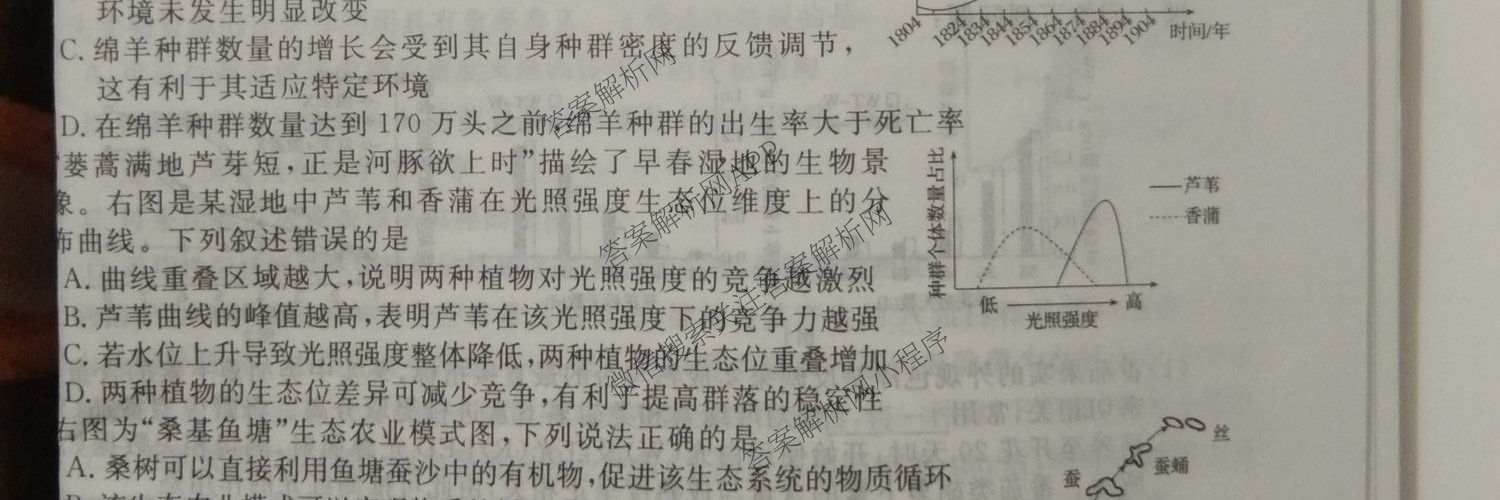 环境未发生明显改变
C. 绵羊种群数量的增长会受到其自身种群密度的反馈调节，
这有利于其适应特定环境
D. 在绵羊种群数量达到 170 万头之前，绵羊种群的出生率大于死亡率
1804 1824 1834 1844 1854 1864 1874 1884 1894 1904 时间/年
“蒌蒿满地芦芽短，正是河豚欲上时”描绘了早春湿地的生物景
象。右图是某湿地中芦苇和香蒲在光照强度生态位维度上的分
布曲线。下列叙述错误的是
A. 曲线重叠区域越大，说明两种植物对光照强度的竞争越激烈
B. 芦苇曲线的峰值越高，表明芦苇在该光照强度下的竞争力越强
C. 若水位上升导致光照强度整体降低，两种植物的生态位重叠增加
D. 两种植物的生态位差异可减少竞争，有利于提高群落的稳定性
种群个体数量占比
芦苇
香蒲
低 高
光照强度
右图为“桑基鱼塘”生态农业模式图，下列说法正确的是
A. 桑树可以直接利用鱼塘蚕沙中的有机物，促进该生态系统的物质循环
丝
蚕蛹
蚕
答案解析网
答案解析网APP
微信搜索关注答案解析网
答案解析网小程序